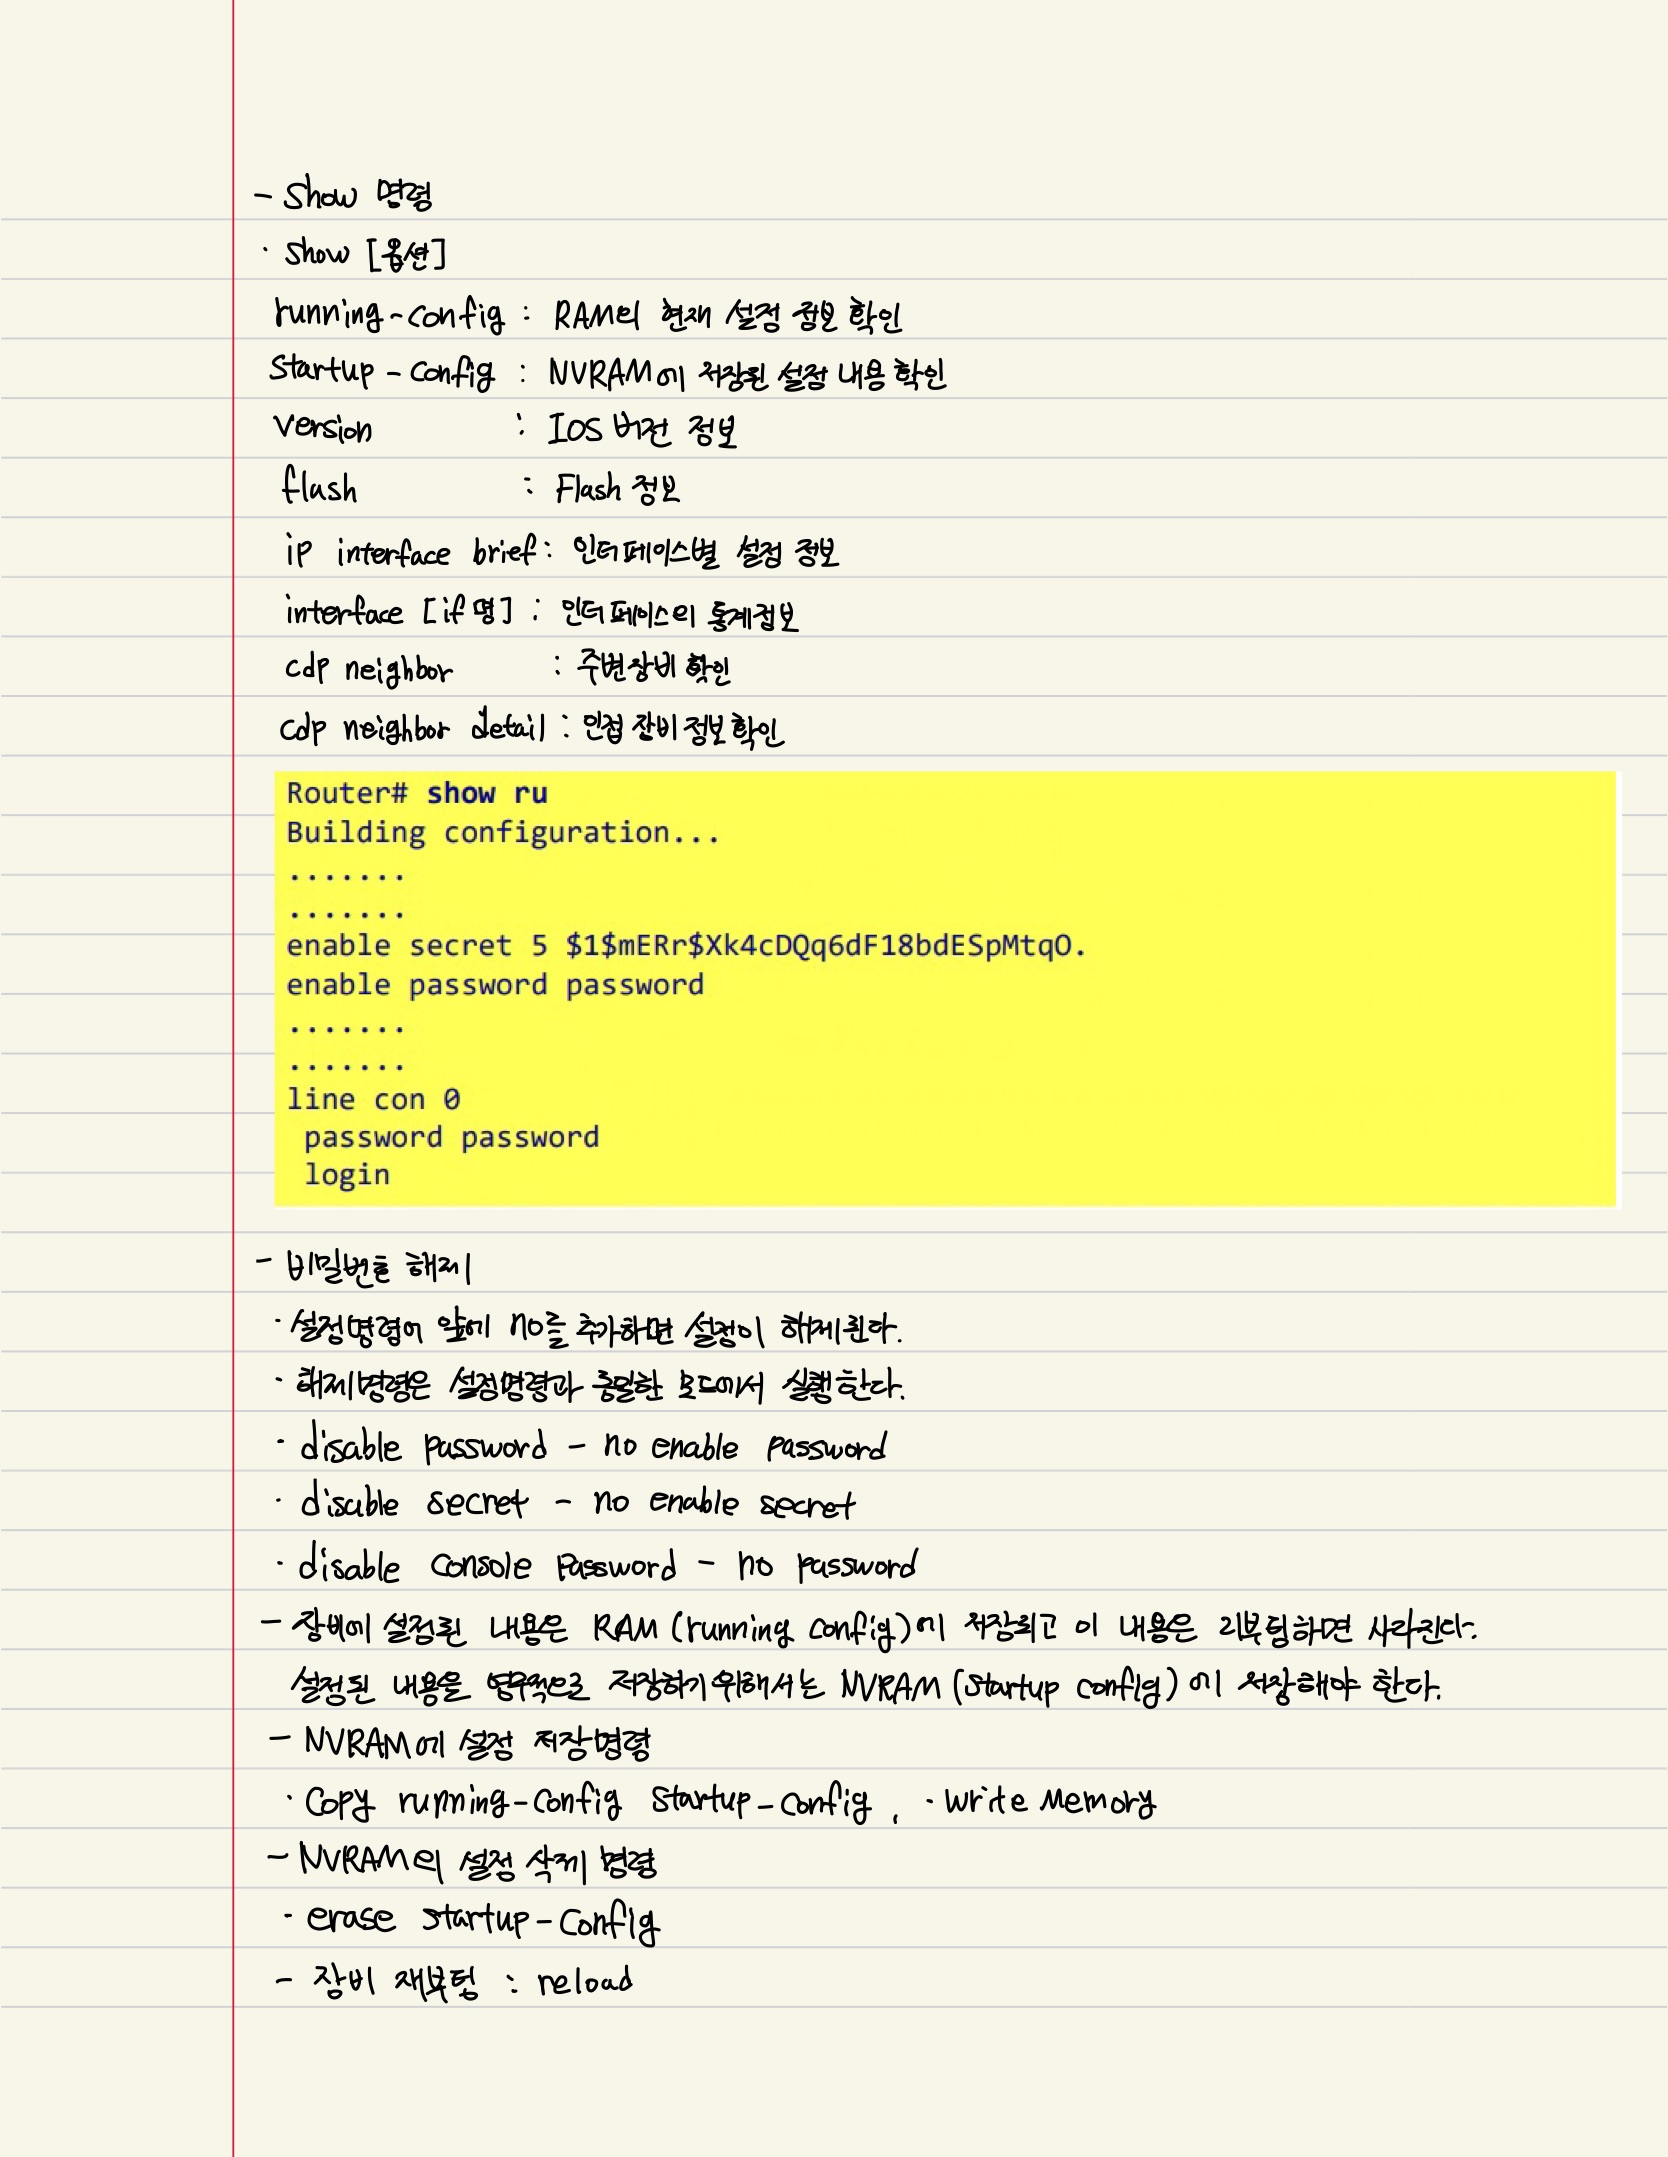 - Show 명령
· Show [옵션]
running-config : RAM의 현재 설정 정보 확인
Startup-config : NVRAM에 저장된 설정 내용 확인
version : IOS 버전 정보
flash : Flash 정보
ip interface brief : 인터페이스별 설정 정보
interface [if명] : 인터페이스의 통계정보
cdp neighbor : 주변장비 확인
cdp neighbor detail : 인접 장비 정보 확인
Router# show ru
Building configuration...
.......
.......
enable secret 5 $1$mERr$Xk4cDQq6dF18bdESpMtqO.
enable password password
.......
.......
line con 0
password password
login
- 비밀번호 해제
· 설정명령어 앞에 no를 추가하면 설정이 해제된다.
· 해제명령은 설정명령과 동일한 모드에서 실행한다.
· disable password - no enable password
· disable secret - no enable secret
· disable console password - no password
- 장비에 설정된 내용은 RAM (running config)에 저장되고 이 내용은 리부팅하면 사라진다.
설정된 내용을 영구적으로 저장하기 위해서는 NVRAM (startup config)에 저장해야 한다.
- NVRAM에 설정 저장명령
· Copy running-config startup-config , · write memory
- NVRAM의 설정 삭제 명령
· erase startup-config
- 장비 재부팅 : reload